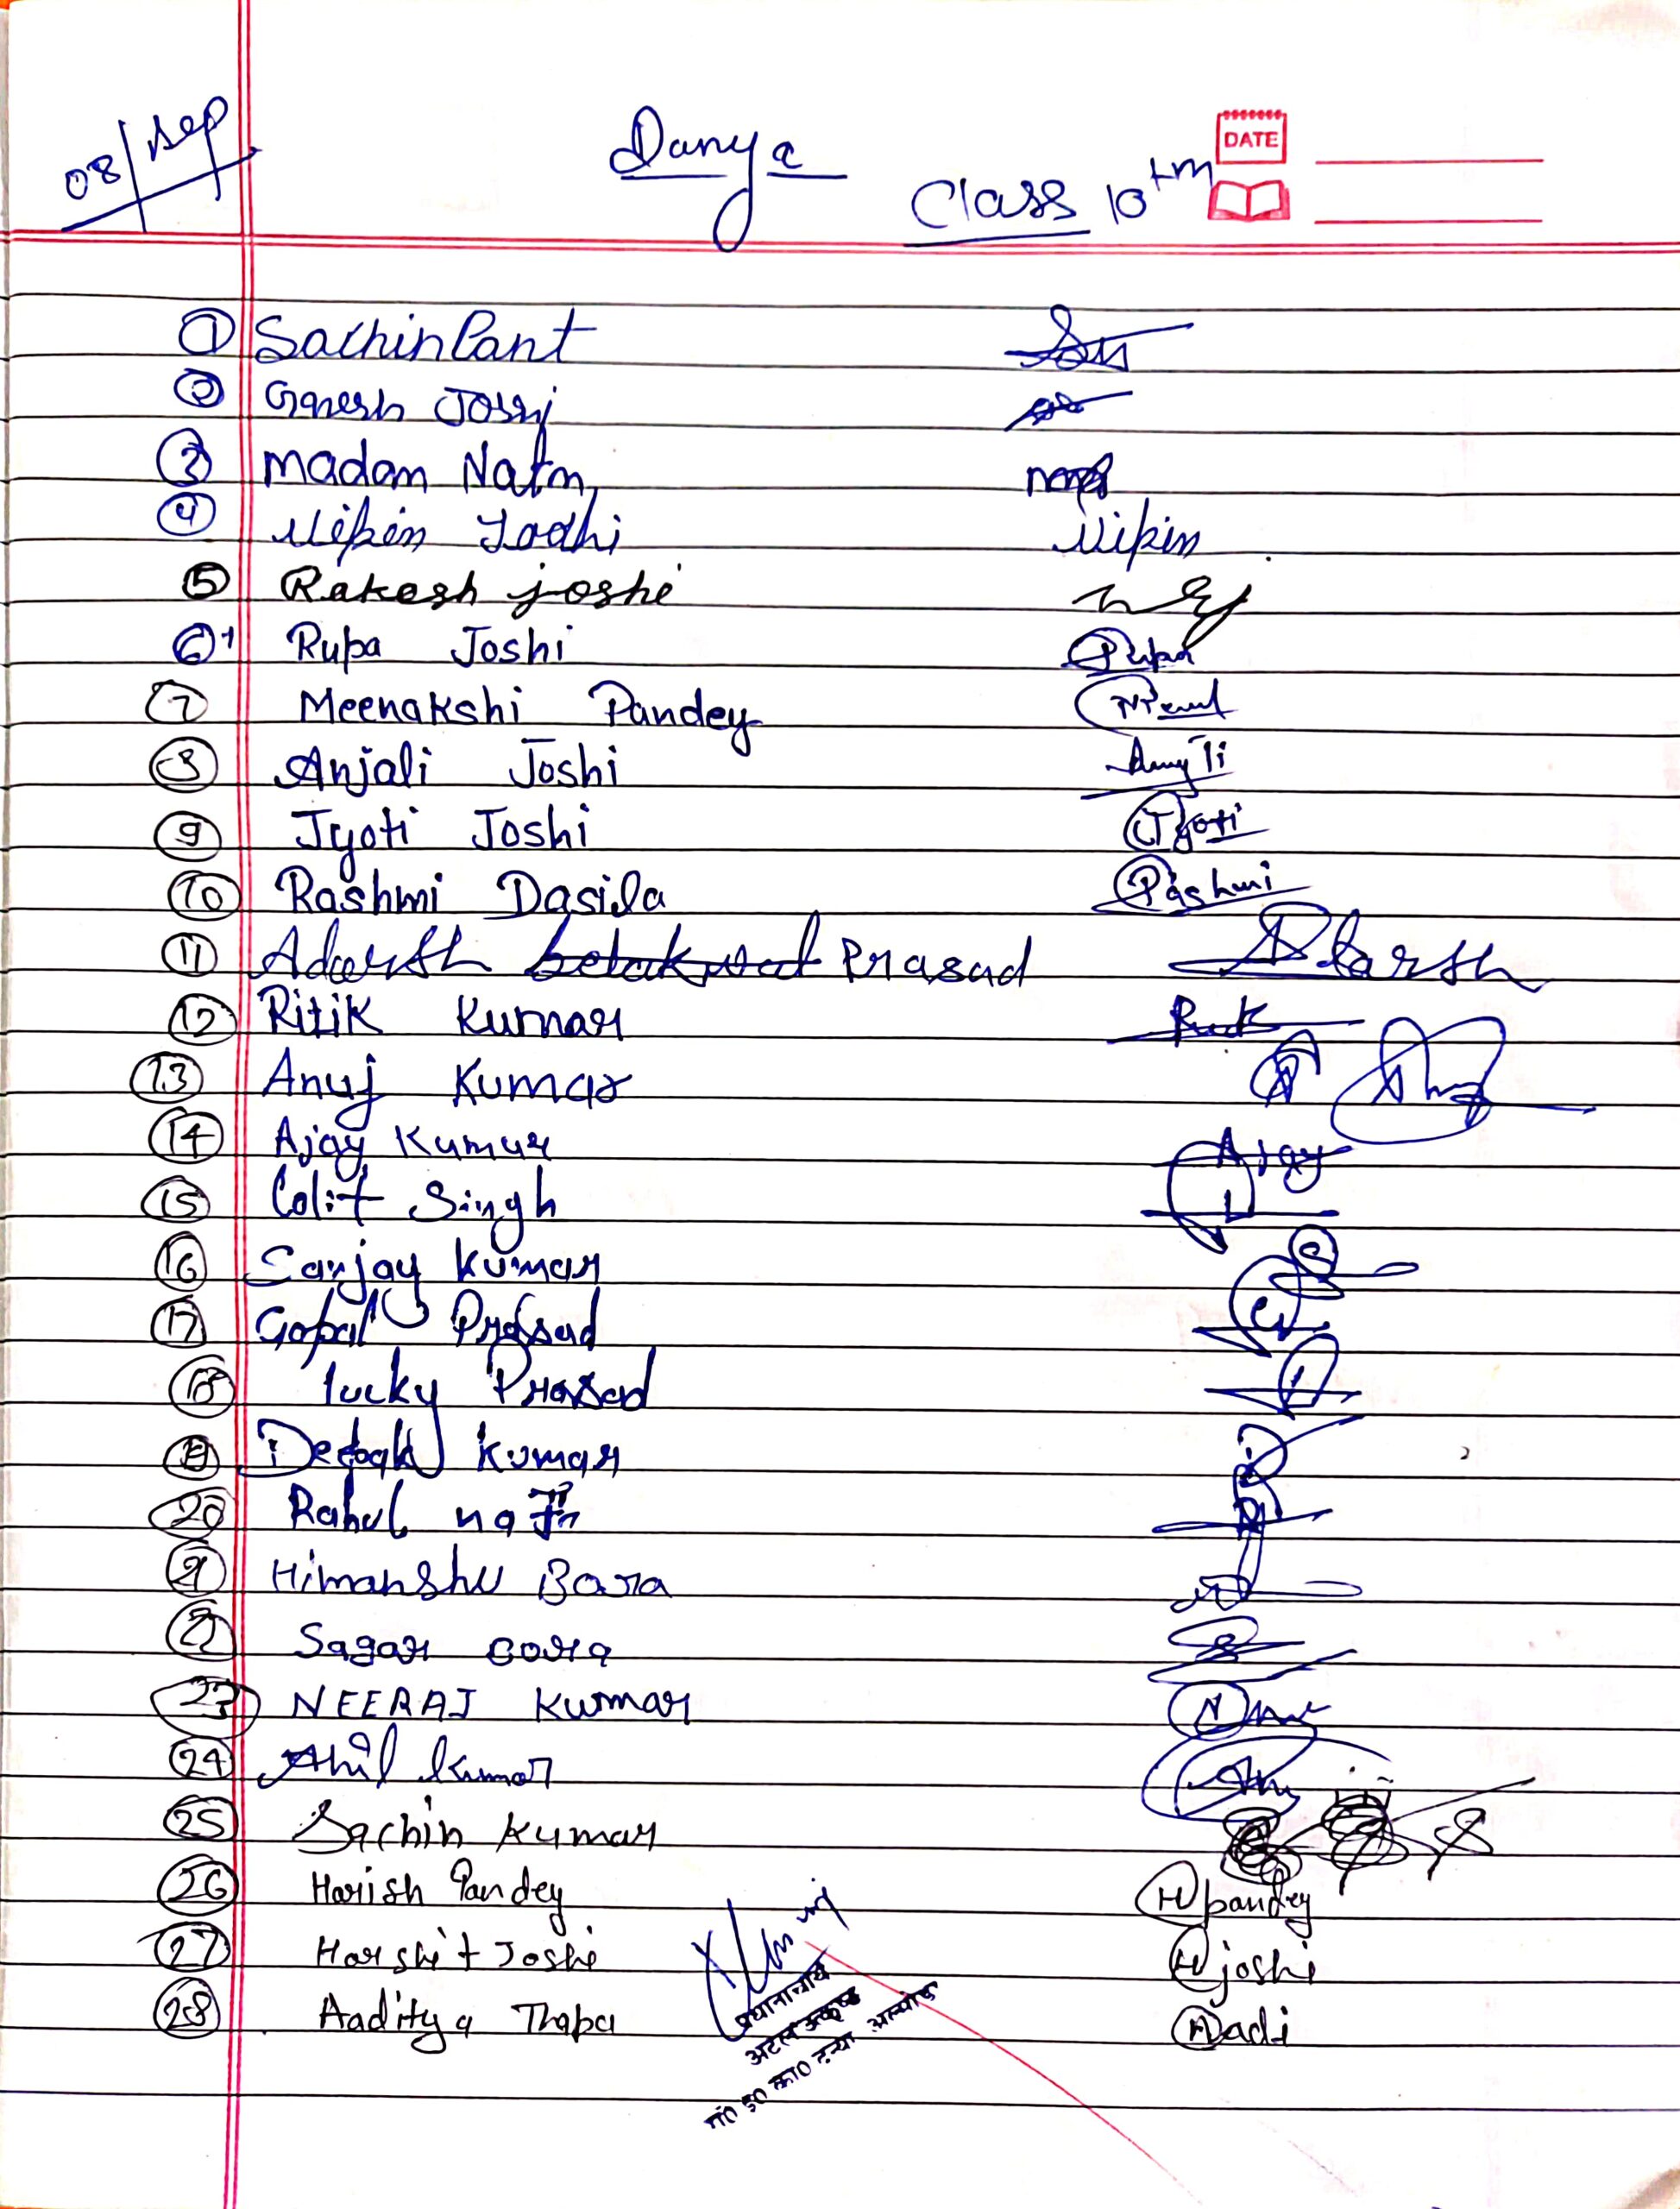 08/Sep
Danya
DATE
Class 10th
1 Sachin Pant
2 Ganesh Joshi
3 Madan Nath
4 Vipin Lodhi Vipin
5 Rakesh joshi
6 Rupa Joshi Rupa
7 Meenakshi Pandey
8 Anjali Joshi
9 Jyoti Joshi Jyoti
10 Rashmi Dasila Rashmi
11 Adarsh Prasad Adarsh
12 Ritik Kumar
13 Anuj Kumar
14 Ajay Kumar Ajay
15 Lalit Singh
16 Sanjay Kumar
17 Gopal Prasad
18 lucky Prasad
19 Deepak Kumar
20 Rahul nath
21 Himanshu Bora
22 Sagar Bora
23 NEERAJ Kumar
24 Anil Kumar
25 Sachin Kumar
26 Harish Pandey H pandey
27 Harshit Joshi H joshi
28 Aaditya Thapa Aadi
प्रधानाचार्य
अटल उत्कृष्ट
रा० इ० का० दन्या अल्मोड़ा